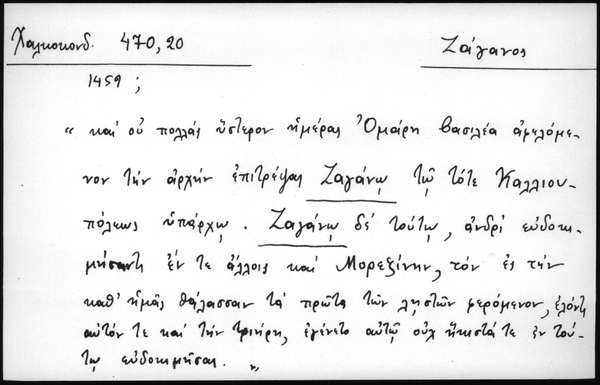 Χαλκοκονδ. 470,20
Ζάγανος
1459 ;
“ καὶ οὐ πολλὰς ὕστερον ἡμέρας Ὁμάρη βασιλέα ἀφελόμε-
νον τὴν ἀρχὴν ἐπιτρέψαι Ζαγάνῳ τῷ τότε Καλλιου-
πόλεως ὑπάρχῳ . Ζαγάνῳ δὲ τούτῳ , ἀνδρὶ εὐδοκι-
μήσαντι ἔν τε ἄλλοις καὶ Μορεξίνην, τὸν ἐς τὴν
καθ' ἡμᾶς θάλασσαν τὰ πρῶτα τῶν λῃστῶν φερόμενον, ἑλόντι
αὐτόν τε καὶ τὴν τριήρη, ἐγένετο αὐτῷ οὐχ ἥκιστά τε ἐν τού-
τῳ εὐδοκιμῆσαι. ”